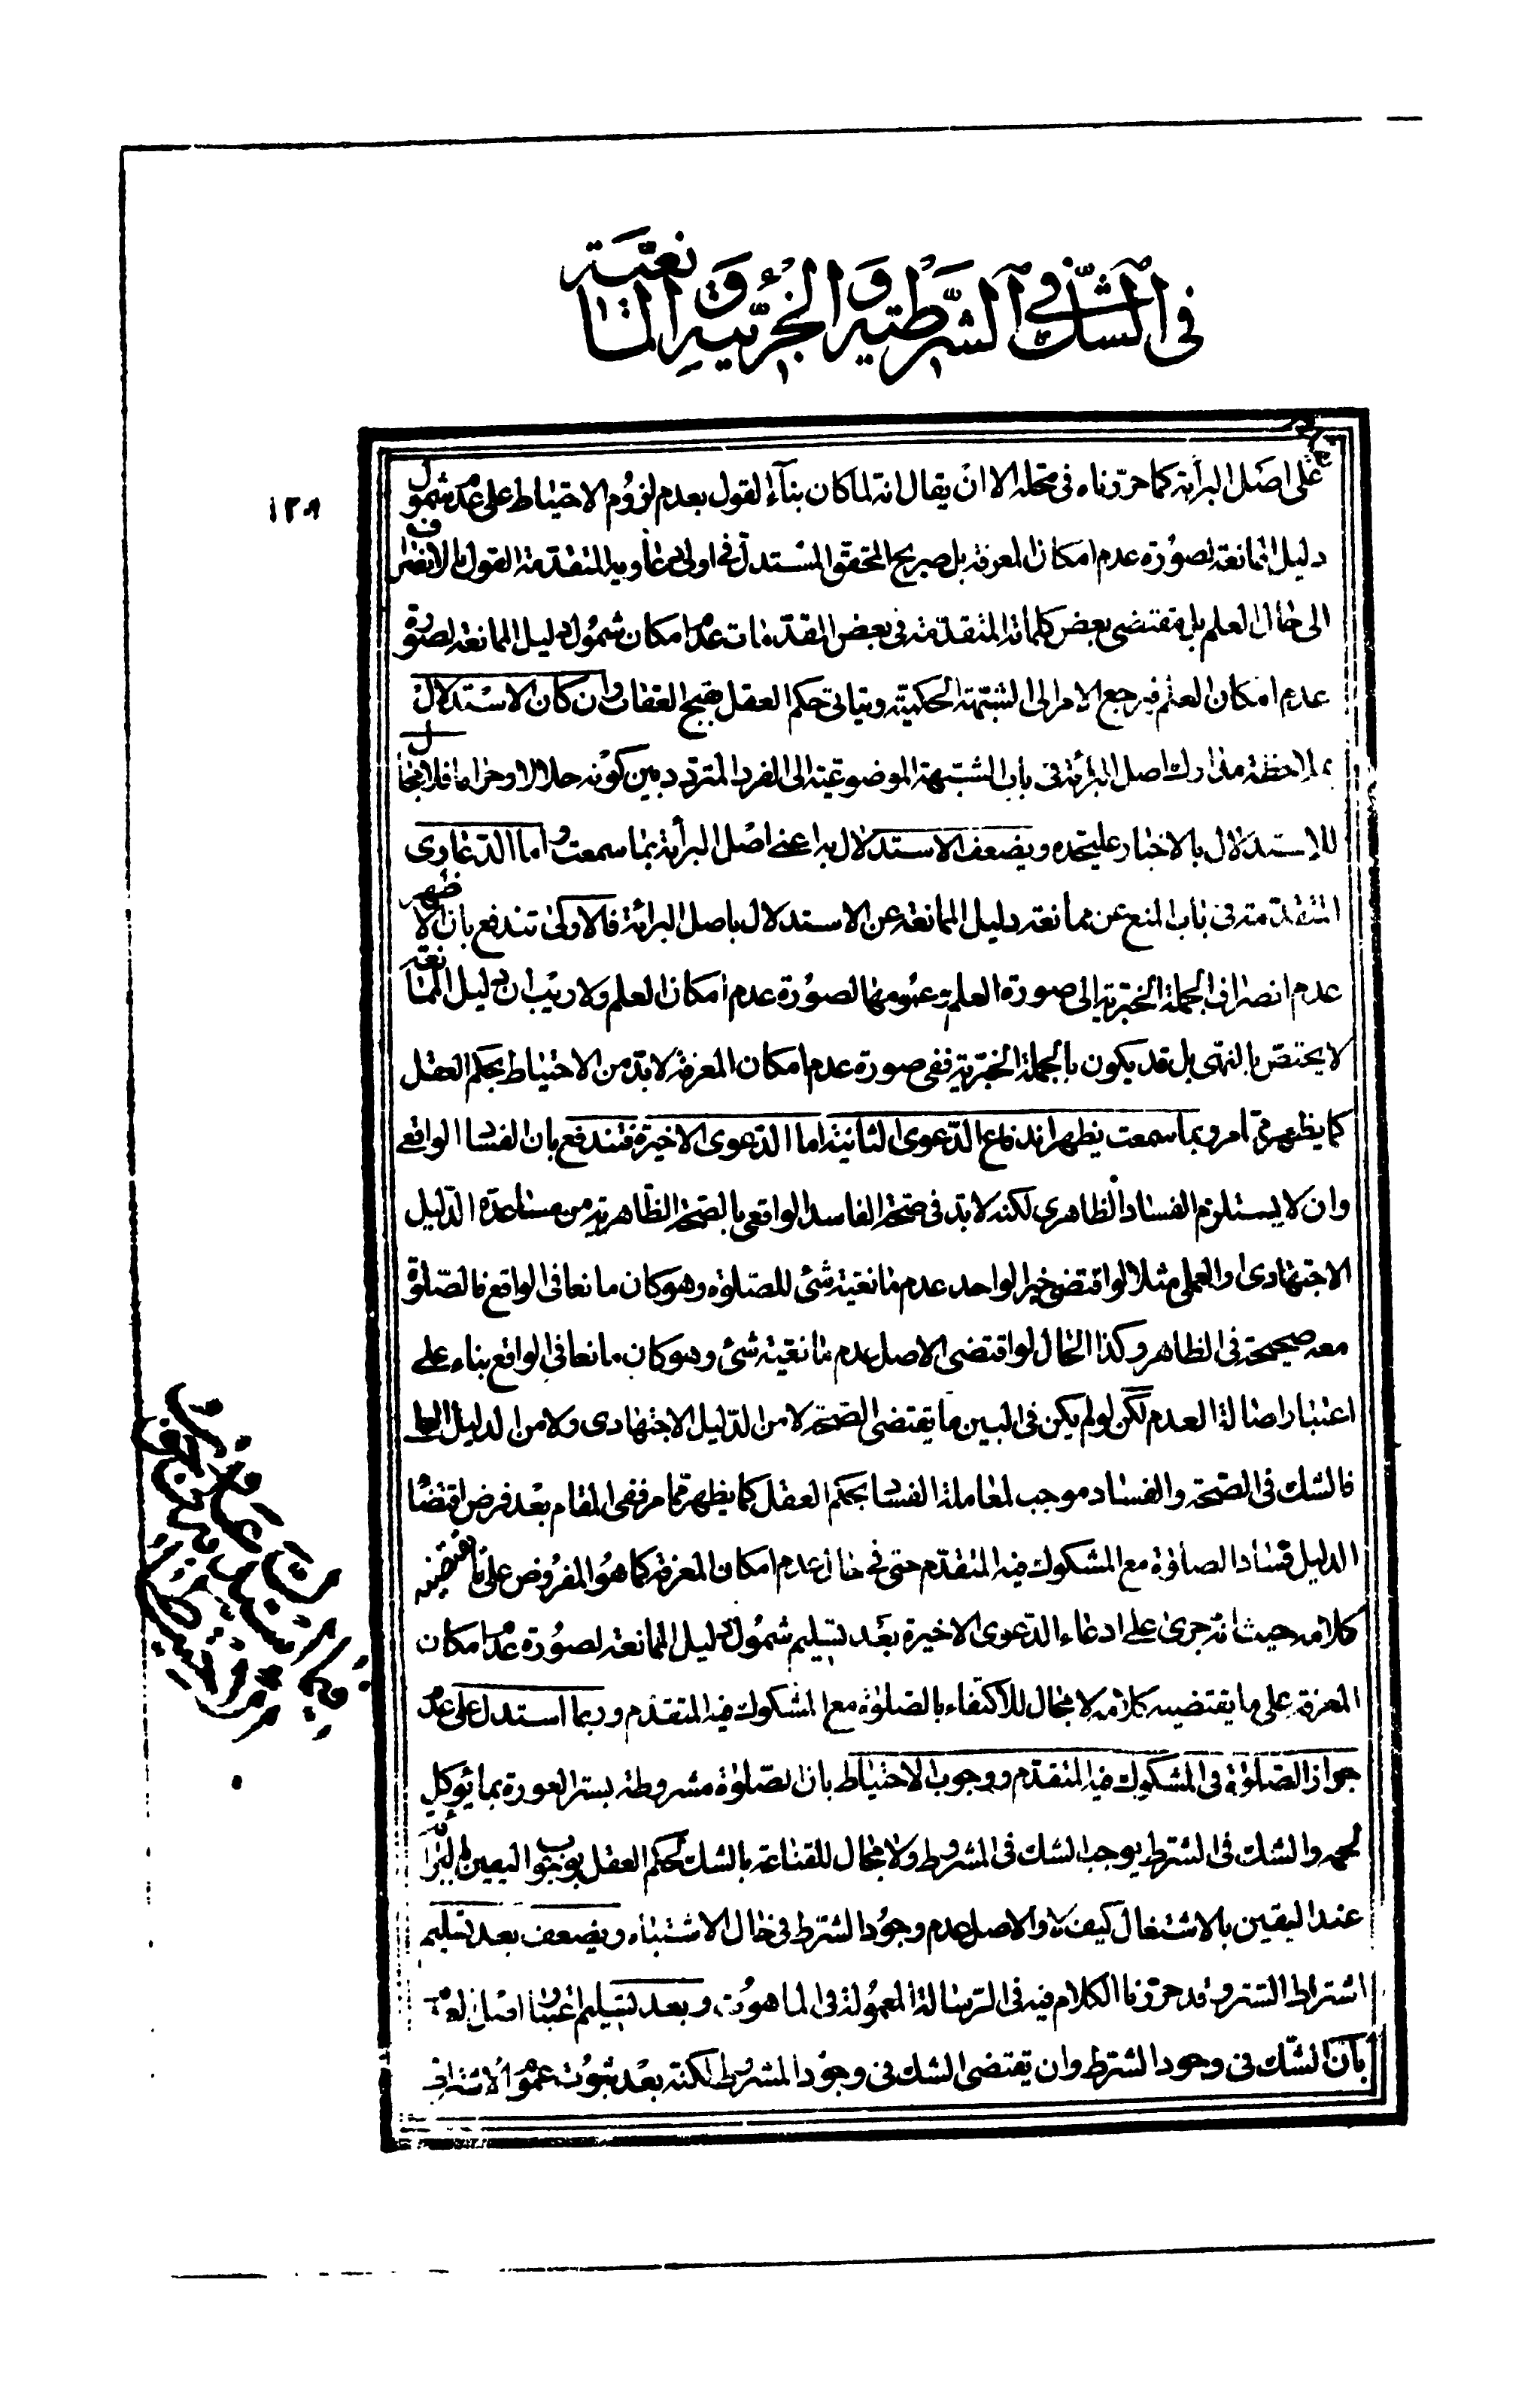 في الشك في الشرطية والجزئية والمانعية
١٢٩
على اصل البرأئة كما حررناه فى محله الا ان يقال انه لما كان بناء القول بعدم لزوم الاحتياط على عدم شمول
دليل المانعية لصورة عدم امكان المعرفة بل صريح المحقق المستدل فى اولى دعاويه المتقدمة القول بالانصراف
الى حال العلم بل مقتضى بعض كلماته المتقدمة فى بعض المقدمات عدم امكان شمول دليل المانعية لصورة
عدم امكان العلم فيرجع الامر الى الشبهة الحكمية ويتاتى حكم العقل بقبح العقاب وان كان الاستدلال
بملاحظة مدارك اصل البرائة فى باب الشبهة الموضوعية الى الفرد المتردد بين كونه حلالا او حراما فلا مجال
للاستدلال بالاخبار عليحده ويضعف الاستدلال به اعنى اصل البرأئة بما سمعت واما الدعاوى
المتقدمة فى باب المنع عن ممانعة دليل المانعية عن الاستدلال باصل البرائة فالاولى تندفع بان الاظهر
عدم انصراف الجملة الخبرية الى صورة العلم وعمومها لصورة عدم امكان العلم ولا ريب ان دليل المانعية
لا يختص بالنهى بل قد يكون بالجملة الخبرية ففى صورة عدم امكان المعرفة لا بد من الاحتياط بحكم العقل
كما يظهر مما مر وبما سمعت يظهر اندفاع الدعوى الثانية اما الدعوى الاخيرة فتندفع بان الفساد الواقعى
وان لا يستلزم الفساد الظاهرى لكنه لا بد فى صحة الفاسد الواقعى بالصحة الظاهرية من مساعدة الدليل
الاجتهادى او العملى مثلا لو اقتضى خبر الواحد عدم مانعية شئ للصلوة وهو كان مانعا فى الواقع فالصلوة
معه صحيحة فى الظاهر وكذا الحال لو اقتضى الاصل عدم مانعية شئ وهو كان مانعا فى الواقع بناء على
اعتبار اصالة العدم لكن لو لم يكن فى البين ما يقتضى الصحة لا من الدليل الاجتهادى ولا من الدليل العملى
فالشك فى الصحة والفساد موجب لمعاملة الفساد بحكم العقل كما يظهر مما مر ففى المقام بعد فرض اقتضاء
الدليل فساد الصلوة مع المشكوك فيه المتقدم حتى فى حال عدم امكان المعرفة كما هو المفروض على ما يقتضيه
كلامه حيث انه جرى على ادعاء الدعوى الاخيرة بعد تسليم شمول دليل المانعية لصورة عدم امكان
المعرفة على ما يقتضيه كلامه لا مجال للاكتفاء بالصلوة مع المشكوك فيه المتقدم وربما استدل على عدم
جواز الصلوة فى المشكوك فيه المتقدم ووجوب الاحتياط بان الصلوة مشروطة بستر العورة بما يؤكل
لحمه والشك فى الشرط يوجب الشك فى المشروط ولا مجال للقناعة بالشك لحكم العقل بوجوب اليقين بالبرائة
عند اليقين بالاشتغال كيف لا والاصل عدم وجود الشرط فى حال الاشتباه ويضعف بعد تسليم
اشتراط الستر وقد حررنا الكلام فيه فى الرسالة المعمولة فى الماهوت وبعد تسليم اعتبار اصل العدم
بان الشك فى وجود الشرط وان يقتضى الشك فى وجود المشروط لكنه بعد ثبوت عموم الاشتراط